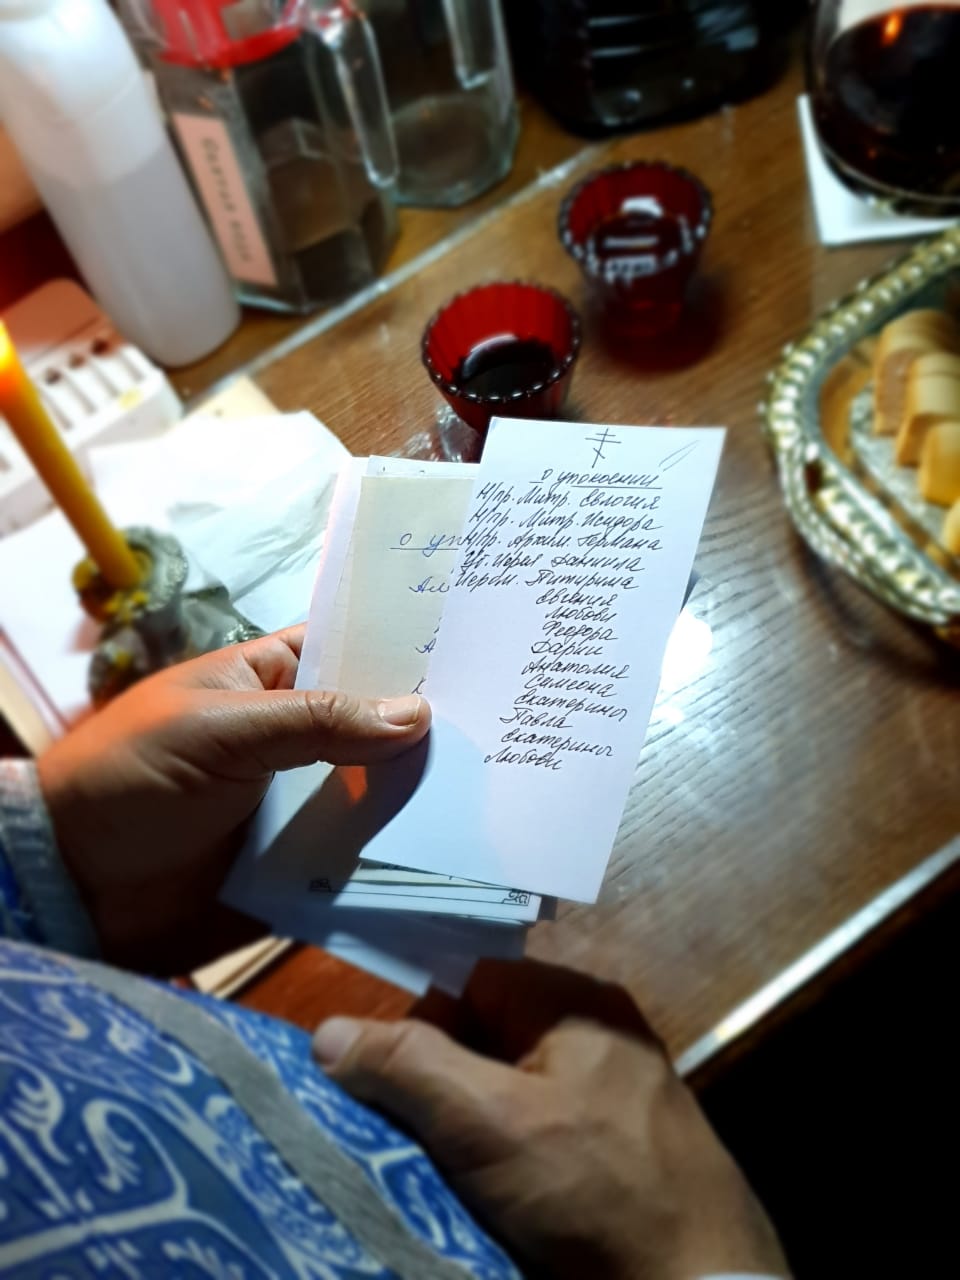 Святая вода
О упокоении
Н/пр. Митр. Евлогия
Н/пр. Митр. Исидора
Н/пр. Архим. Германа
Уб. Иерея Даниила
Иером. Питирима
Евгения
Любови
Феодора
Дарии
Анатолия
Симеона
Екатерины
Павла
Екатерины
Любови
о уп
Ал
А
К